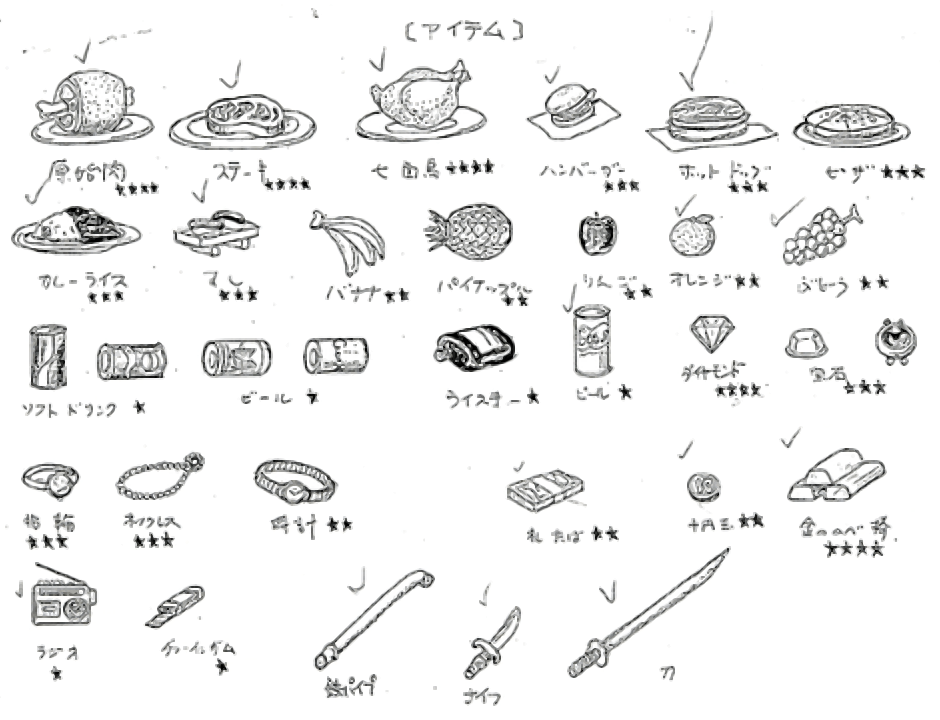 ［アイテム］
原始肉 ★★★★
ステーキ ★★★★
七面鳥 ★★★★
ハンバーガー ★★★
ホットドッグ ★★★
ピザ ★★★
カレーライス ★★★
すし ★★★
バナナ ★★
パイナップル ★★
りんご ★★
オレンジ ★★
ぶどう ★★
ソフトドリンク ★
ビール ★
ウイスキー ★
ビール ★
ダイヤモンド ★★★★
宝石 ★★★
指輪 ★★★
ネックレス ★★★
時計 ★★
札たば ★★
十円玉 ★★
金ののべ棒 ★★★★
ラジオ ★
チューインガム ★
鉄パイプ
ナイフ
刀